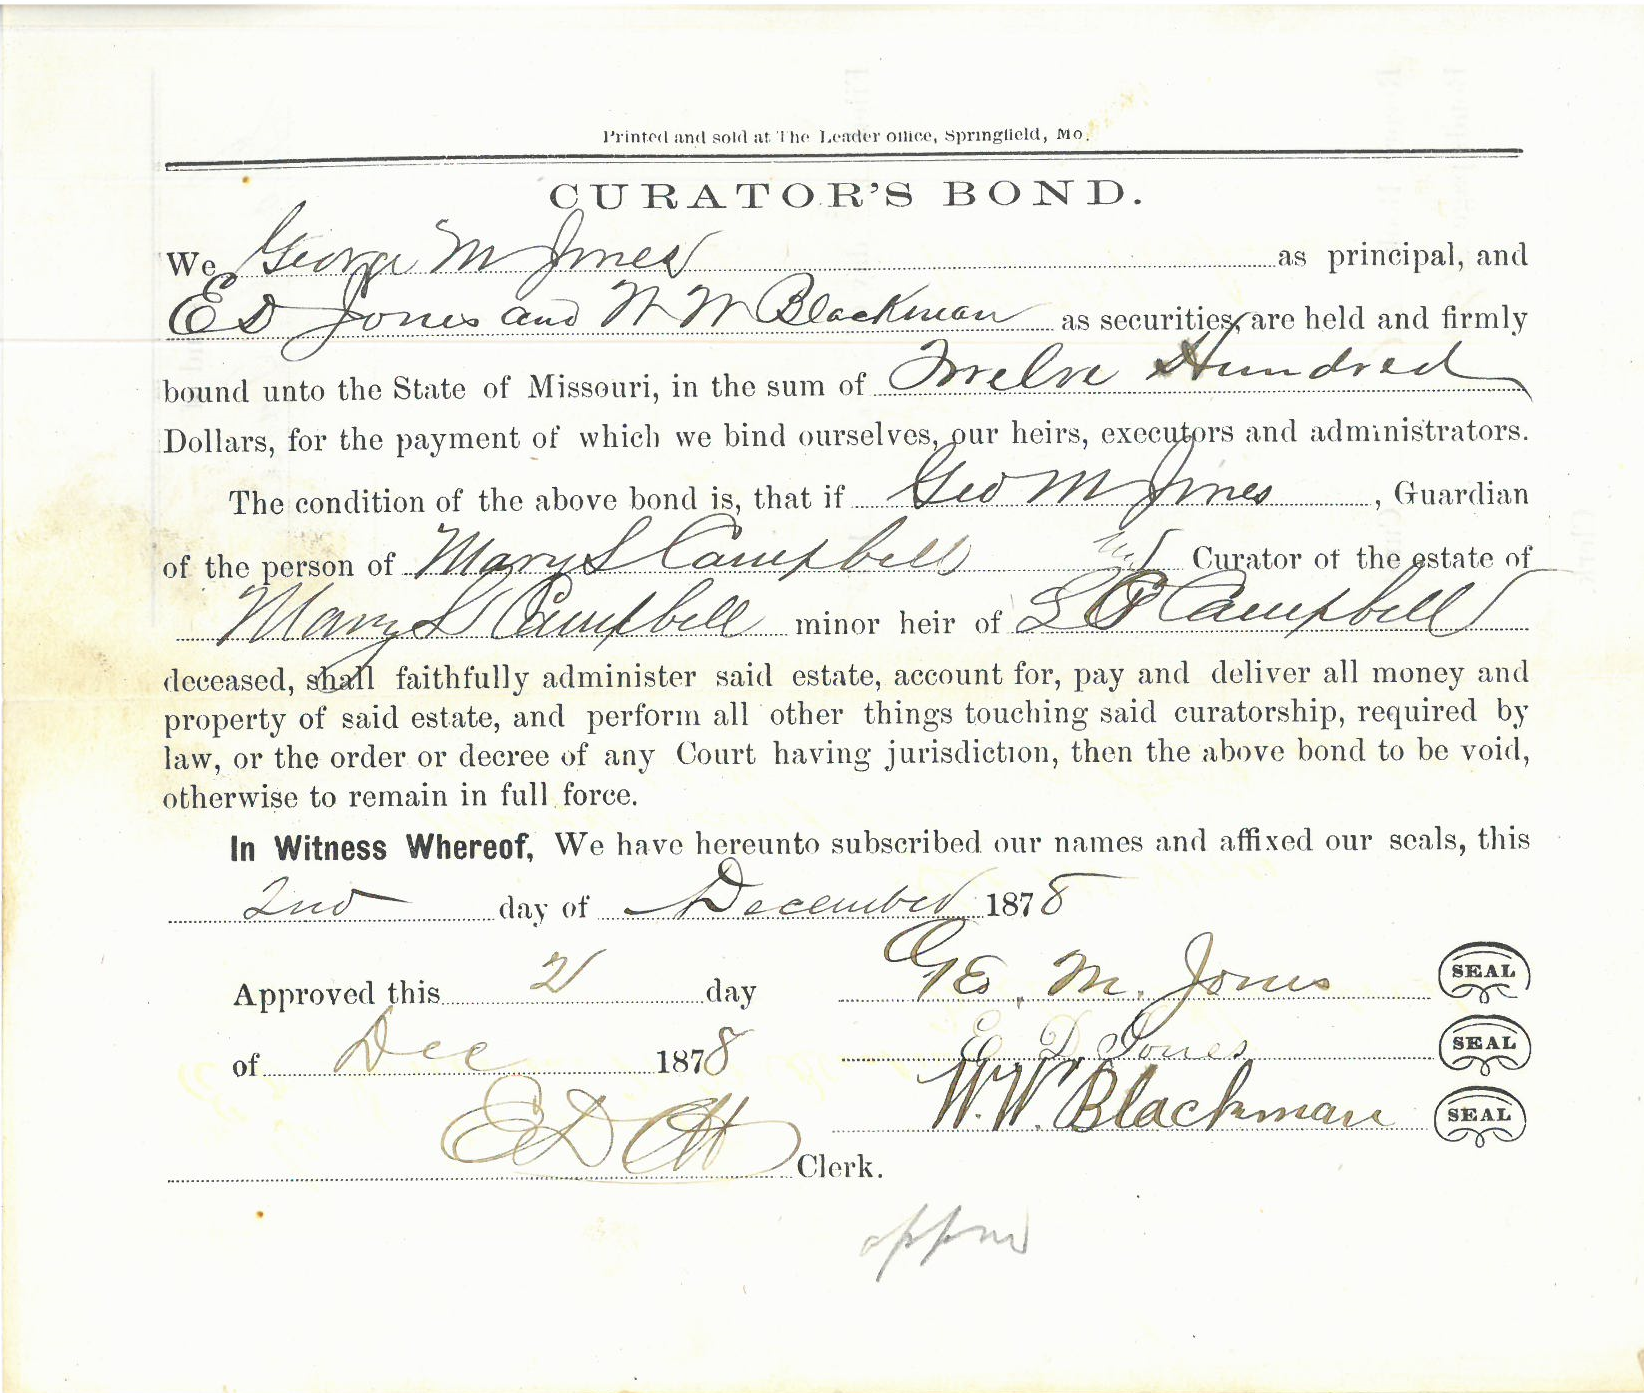 Printed and sold at The Leader office, Springfield, Mo.
CURATOR'S BOND.
We George M Jones as principal, and
E D Jones and W W Blackman as securities, are held and firmly
bound unto the State of Missouri, in the sum of Twelve Hundred
Dollars, for the payment of which we bind ourselves, our heirs, executors and administrators.
The condition of the above bond is, that if Geo M Jones, Guardian
of the person of Mary S Campbell and Curator of the estate of
Mary S Campbell minor heir of L P Campbell
deceased, shall faithfully administer said estate, account for, pay and deliver all money and
property of said estate, and perform all other things touching said curatorship, required by
law, or the order or decree of any Court having jurisdiction, then the above bond to be void,
otherwise to remain in full force.
In Witness Whereof, We have hereunto subscribed our names and affixed our seals, this
2nd day of December 1878
Approved this 2 day
of Dec 1878
E D Ott Clerk.
Geo. M. Jones SEAL
E D Jones SEAL
W. W. Blackman SEAL